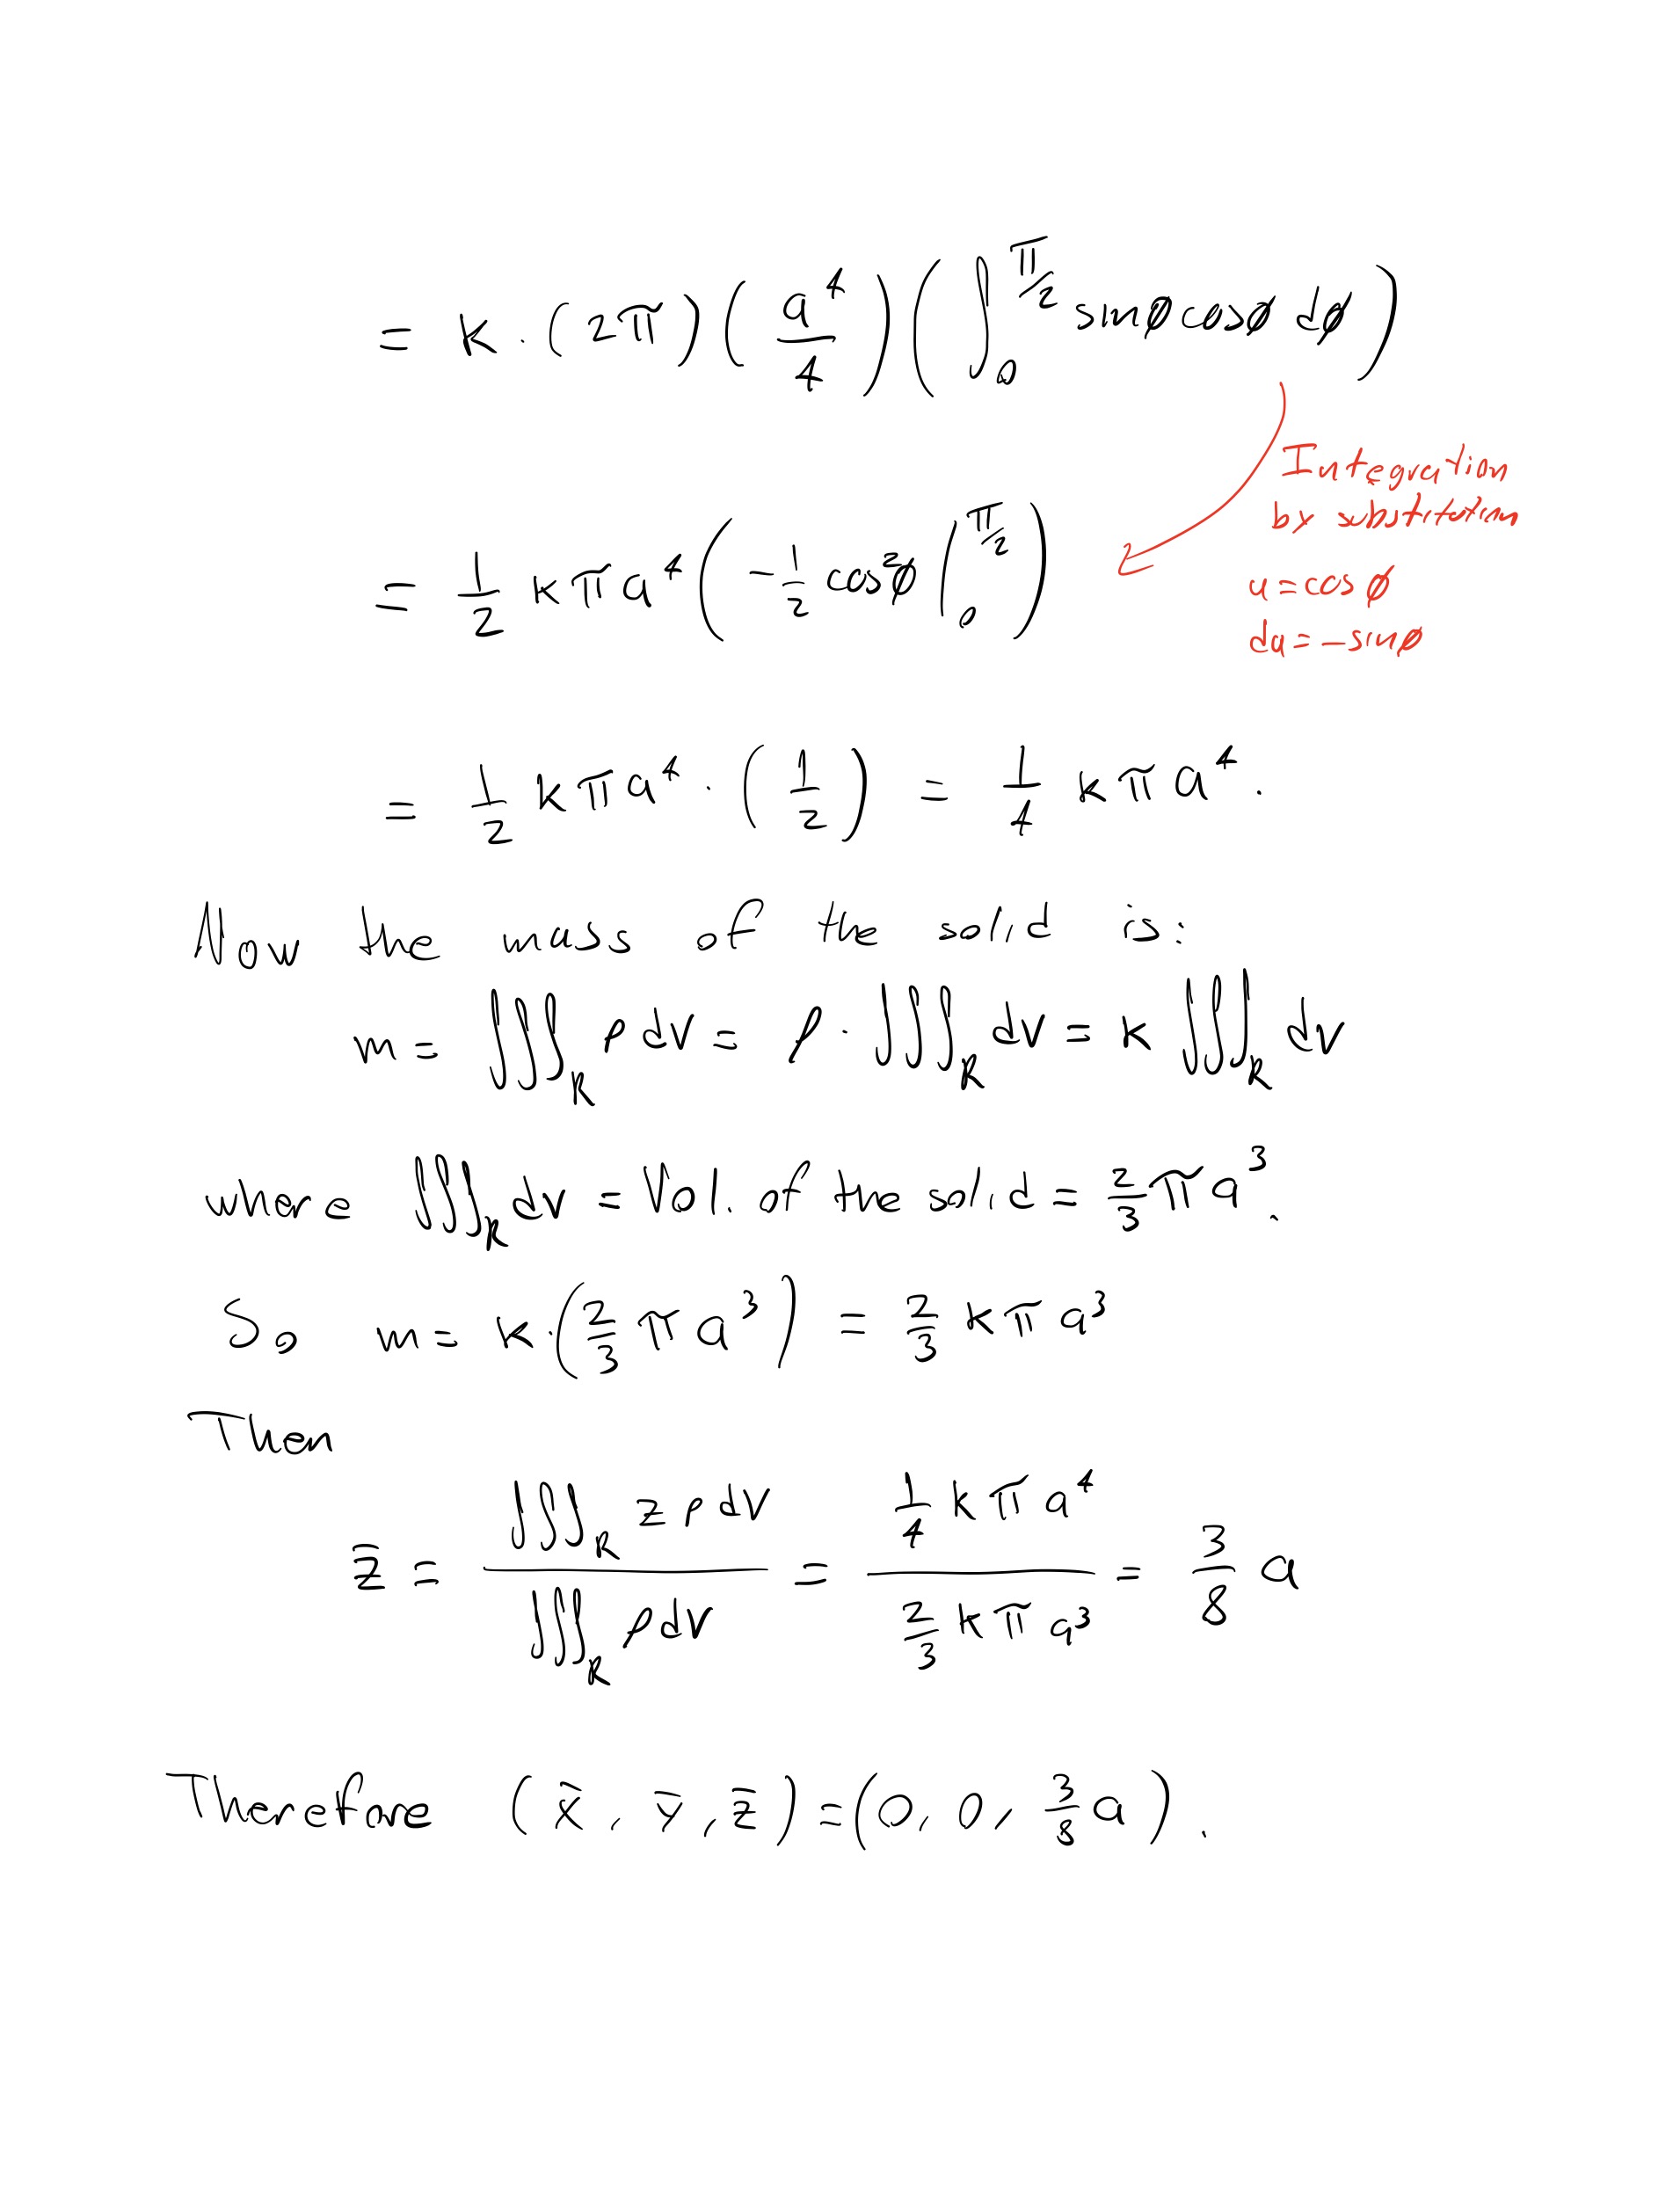 = k · (2π) (a⁴/4) (∫₀^{π/2} sinφ cosφ dφ)
Integration
by substitution
= 1/2 kπa⁴ (-1/2 cos²φ |₀^{π/2})
u = cos φ
du = -sinφ
= 1/2 kπa⁴ · (1/2) = 1/4 kπa⁴.
Now the mass of the solid is:
m = ∭_R ρ dV = ρ · ∭_R dV = k ∭_R dV
where ∭_R dV = Vol. of the solid = 2/3 πa³.
So m = k·(2/3 πa³) = 2/3 kπa³
Then
z̄ = ∭_R z ρ dV / ∭_R ρ dV = 1/4 kπa⁴ / 2/3 kπa³ = 3/8 a
Therefore (x̄, ȳ, z̄) = (0, 0, 3/8 a).